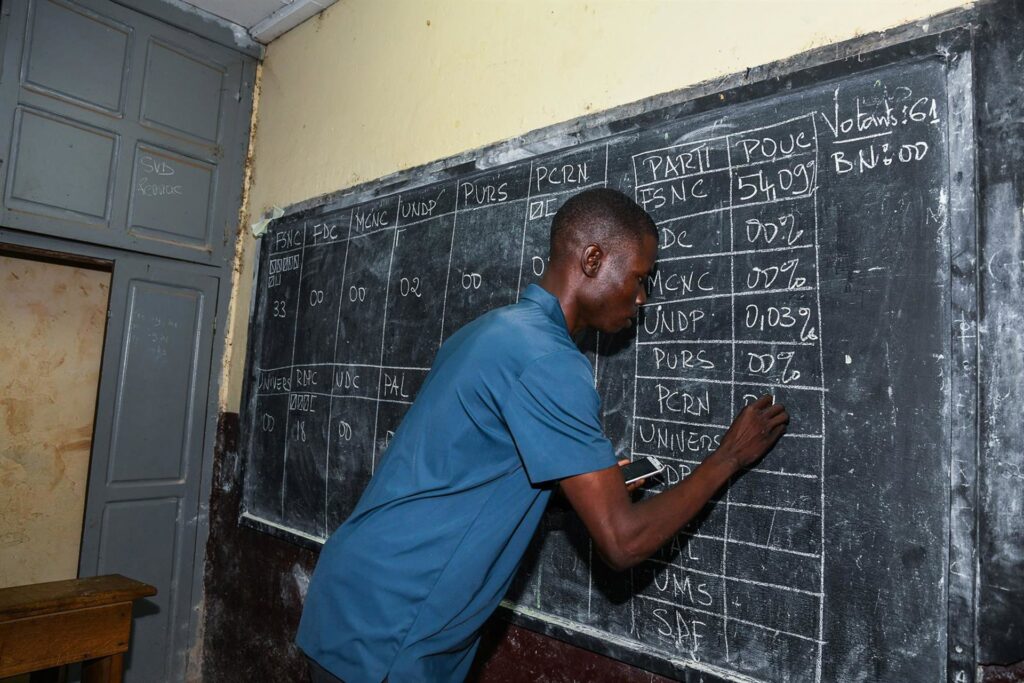 SVB
FSNC FDC MCNC UNDP PURS PCRN
33 00 00 02 00
UNIVERS RDPC UDC PAL
00 18 00
PARTI POUC
FSNC 54,09%
DC 00%
MCNC 00%
UNDP 0,03%
PURS 00%
PCRN
UNIVERS
UMS
Votants: 61
BN: 00